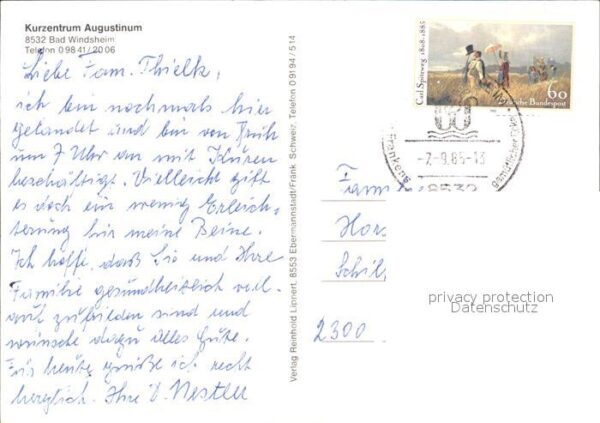 Kurzentrum Augustinum
8532 Bad Windsheim
Telefon 0 98 41 / 20 06
Liebe Fam. Thielk,
ich bin nochmals hier
gelandet und bin von früh
um 7 Uhr an mit Kuren
beschäftigt. Vielleicht gibt
es doch ein wenig Erleich-
terung für meine Beine.
Ich hoffe, daß Sie und Ihre
Familie gesundheitlich
zufrieden sind und
wünsche dazu alles Gute.
Für heute grüße ich recht
herzlich. Ihre D. Nestler
Verlag Reinhold Lippert, 8553 Ebermannstadt/Fränk. Schweiz, Telefon 0 91 94 / 514
Carl Spitzweg 1808-1885
60
Deutsche Bundespost
Frankens gemütlicher
-7.-9.85-13
8532
Fam
Hor
Schil
2300
privacy protection
Datenschutz